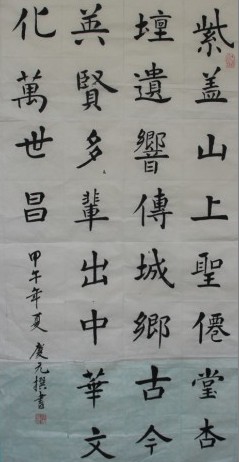 紫盖山上聖僊堂杏
壇遺響傳城鄉古今
英賢多輩出中華文
化萬世昌
甲午年夏 慶元撰書